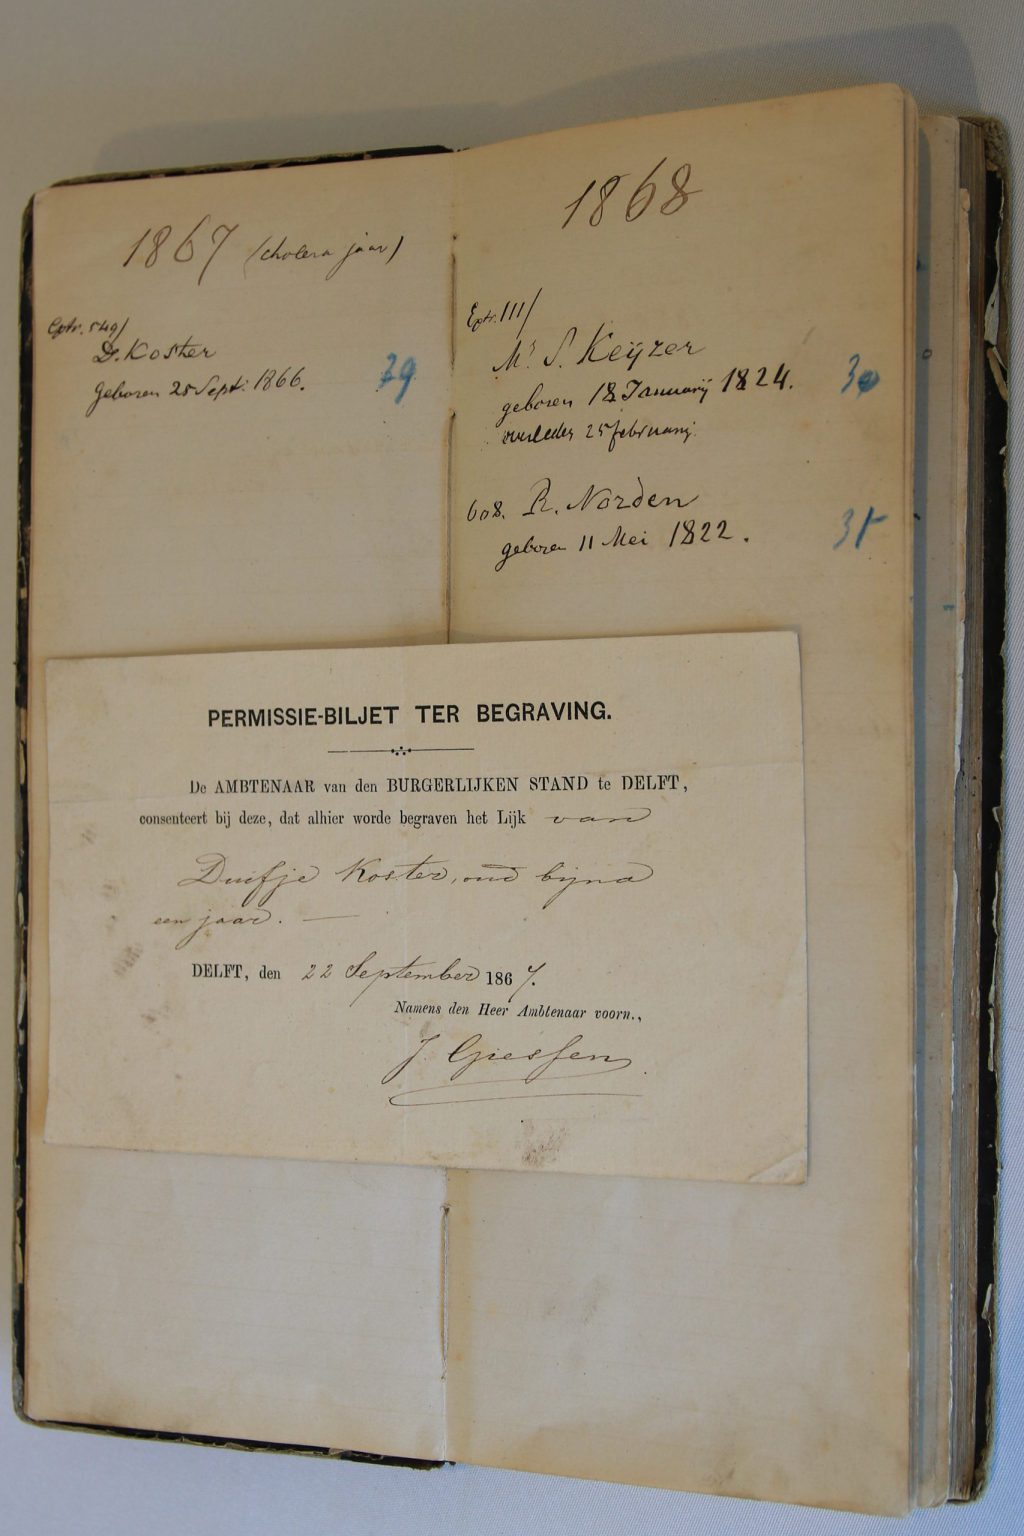 1867 (cholera jaar)
Eptr. 549/
D. Koster
geboren 25 Sept: 1866.
29
1868
Eptr. 111/
Mr S. Keÿzer
geboren 18 Januarij 1824.
overleden 25 februarij.
30
608. R. Norden
geboren 11 Mei 1822.
31
PERMISSIE-BILJET TER BEGRAVING.
De AMBTENAAR van den BURGERLIJKEN STAND te DELFT,
consenteert bij deze, dat alhier worde begraven het Lijk van
Duifje Koster, oud bijna
een jaar. —
DELFT, den 22 September 1867.
Namens den Heer Ambtenaar voorn.,
J. Giessen